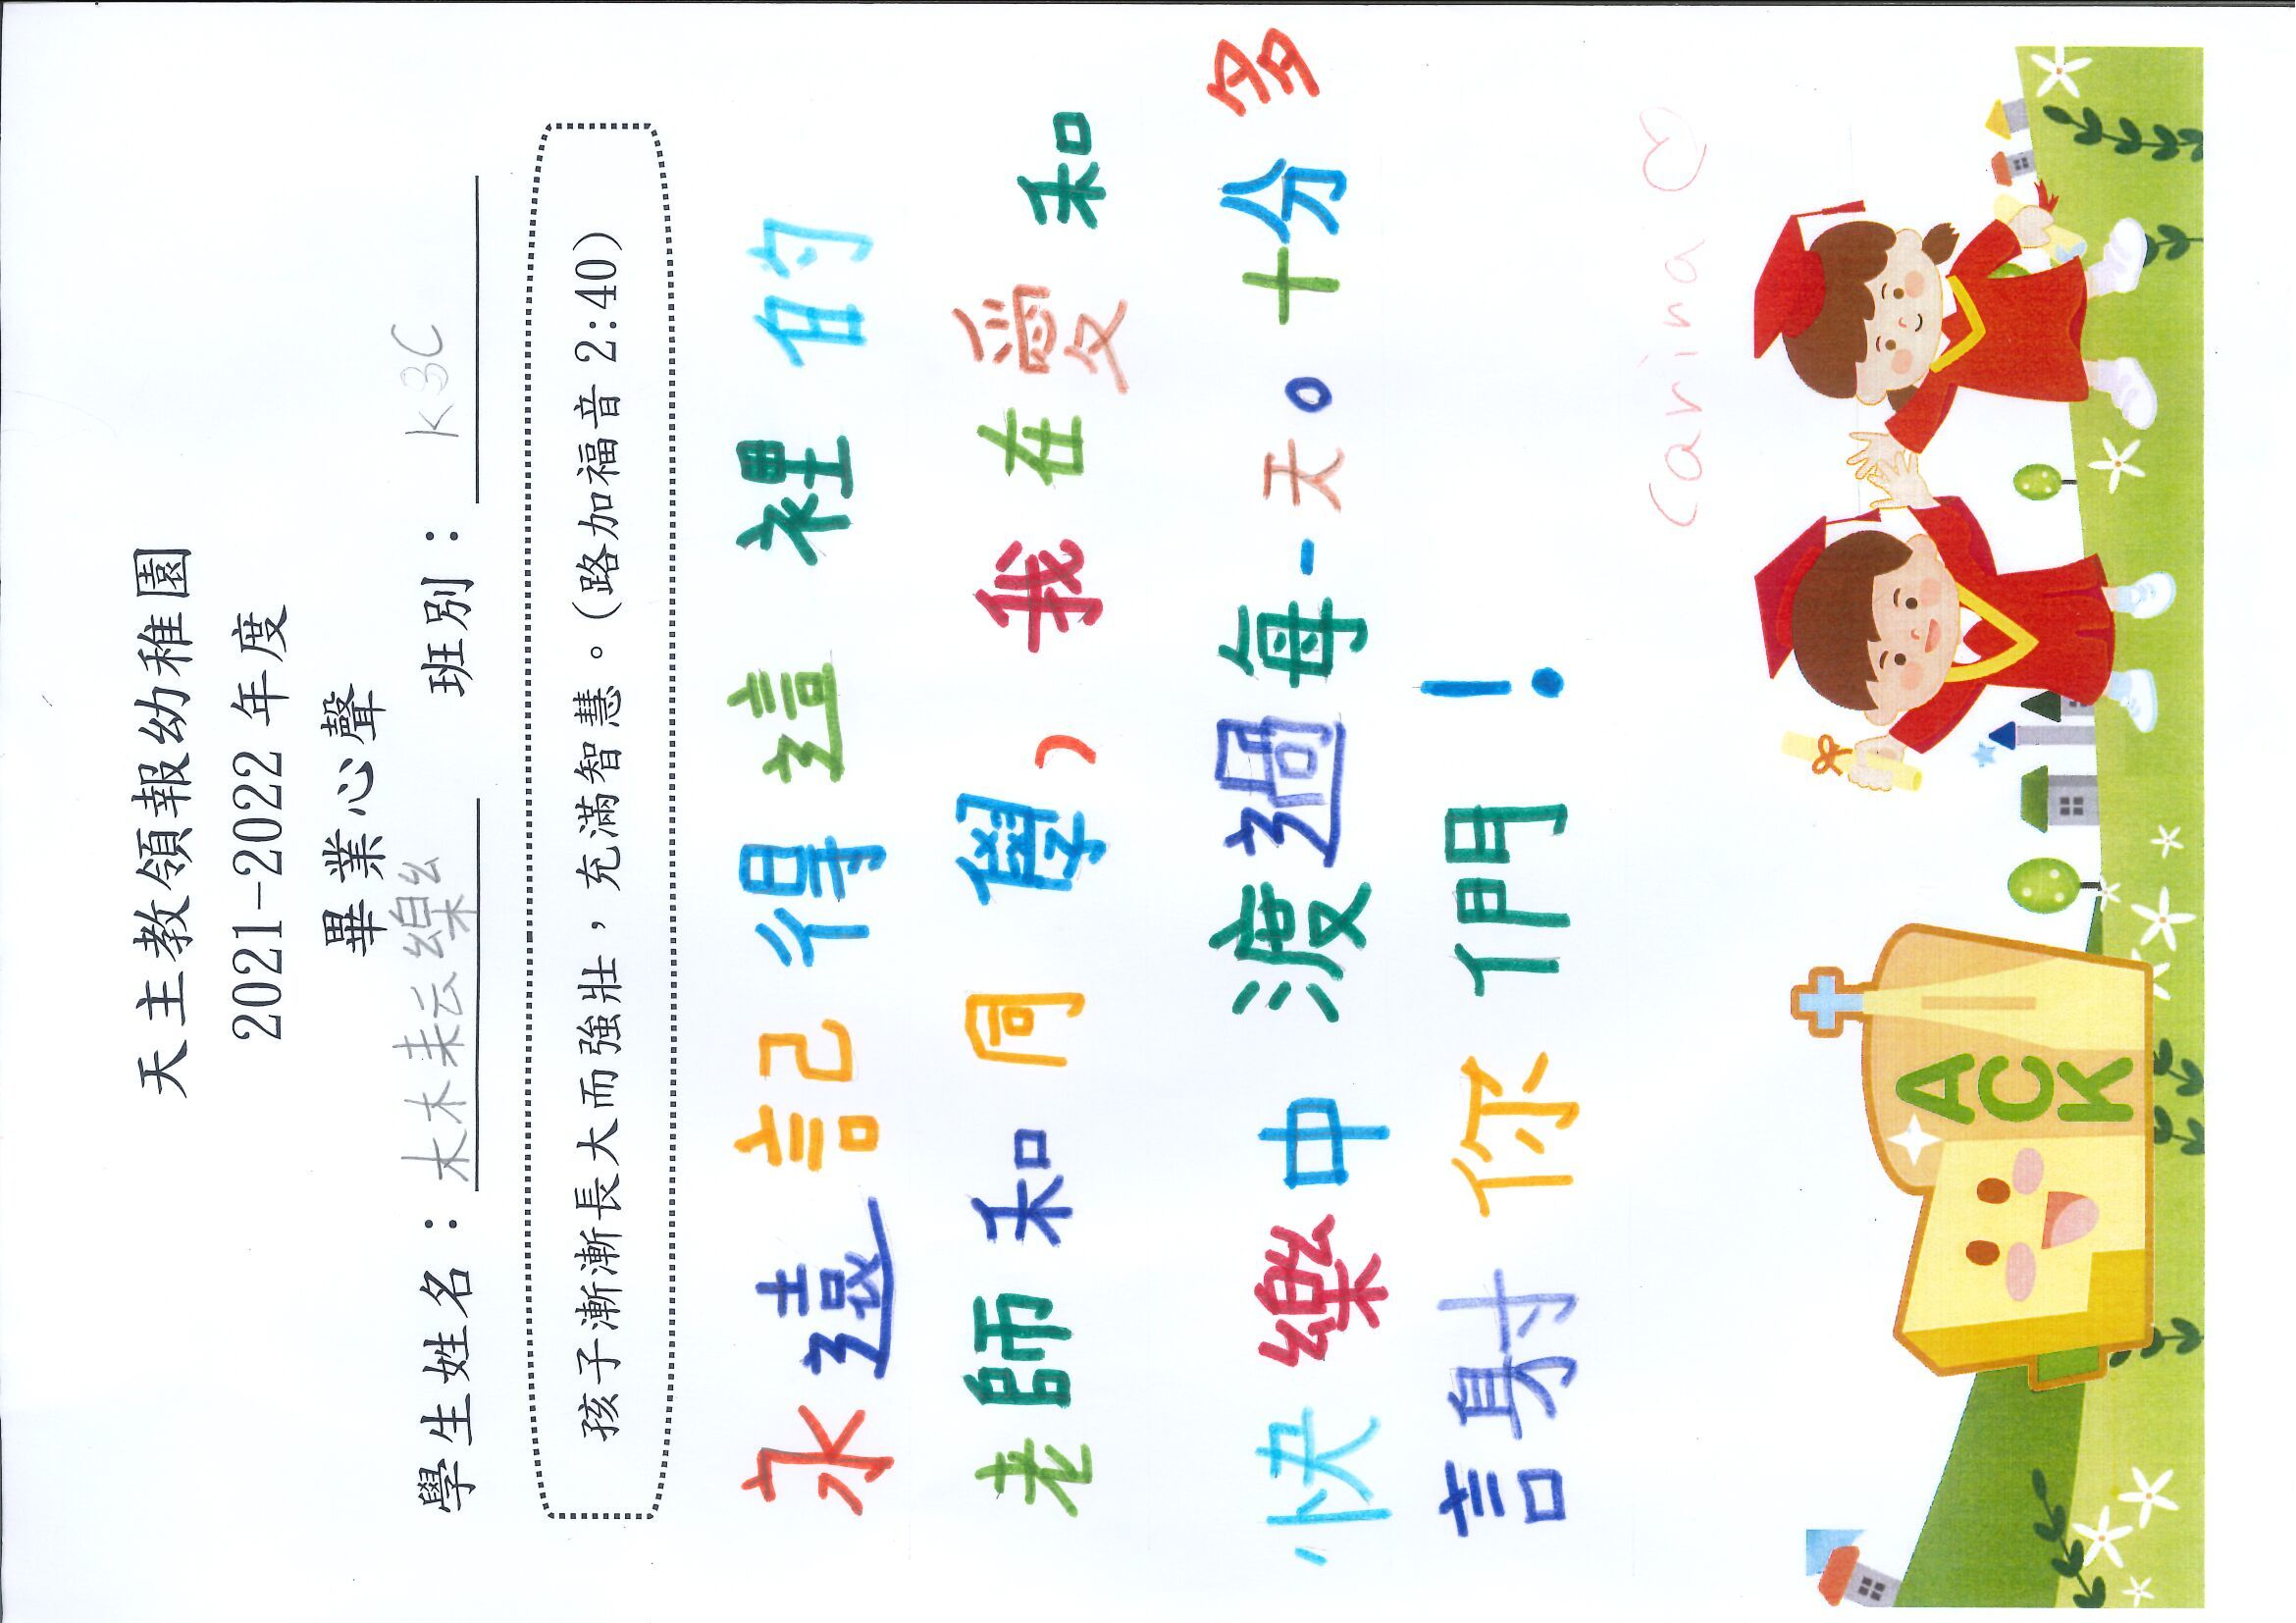 天主教領報幼稚園
2021-2022 年度
畢業心聲
學生姓名：林耘樂 班別：K3C
孩子漸漸長大而強壯，充滿智慧。(路加福音 2:40)
永遠記得這裡的
老師和同學，我在愛和
快樂中渡過每一天。十分多
謝你們！
carina
ACK